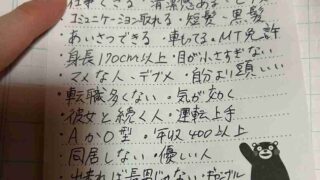 仕事できる・清潔感ある・
コミュニケーション取れる・短髪・黒髪
・あいさつできる・車もってる・MT免許
・身長170cm以上・目が小さすぎない
・マメな人・デブ✕・自分より頭いい
・転職多くない・気が効く
・彼女と続く人・運転上手
・AかO型・年収400以上
・同居しない・優しい人
・出来れば長男じゃない・ギャンブル